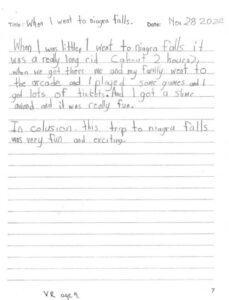 Title: When I went to niagra falls. Date: Nov 28 2022
When I was little, I went to niagra falls it
was a realy long rid (about 2 hours?),
when we got there me and my family went to
the arcade and I played some games and I
got lots of tickets. And I got a slime
and it was really fun.
In colusion, this trip to niagra falls
was very fun and exciting.
VR age 9
7